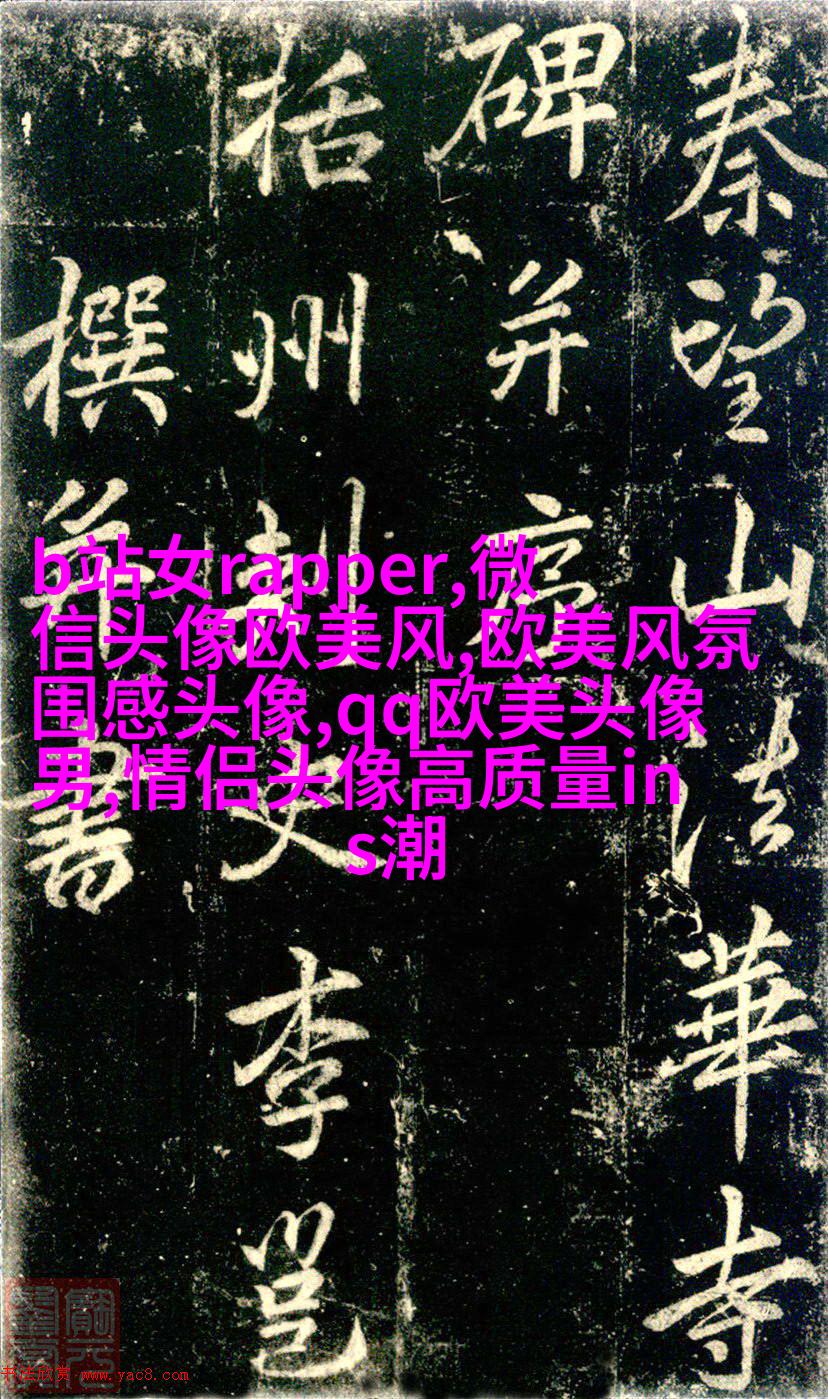 秦望山法華寺
碑并序
括州刺史李邕
撰并書
b站女rapper,微
信头像欧美风,欧美风氛
围感头像,qq欧美头像
男,情侣头像高质量in
s潮
书法欣赏 www.yac8.com